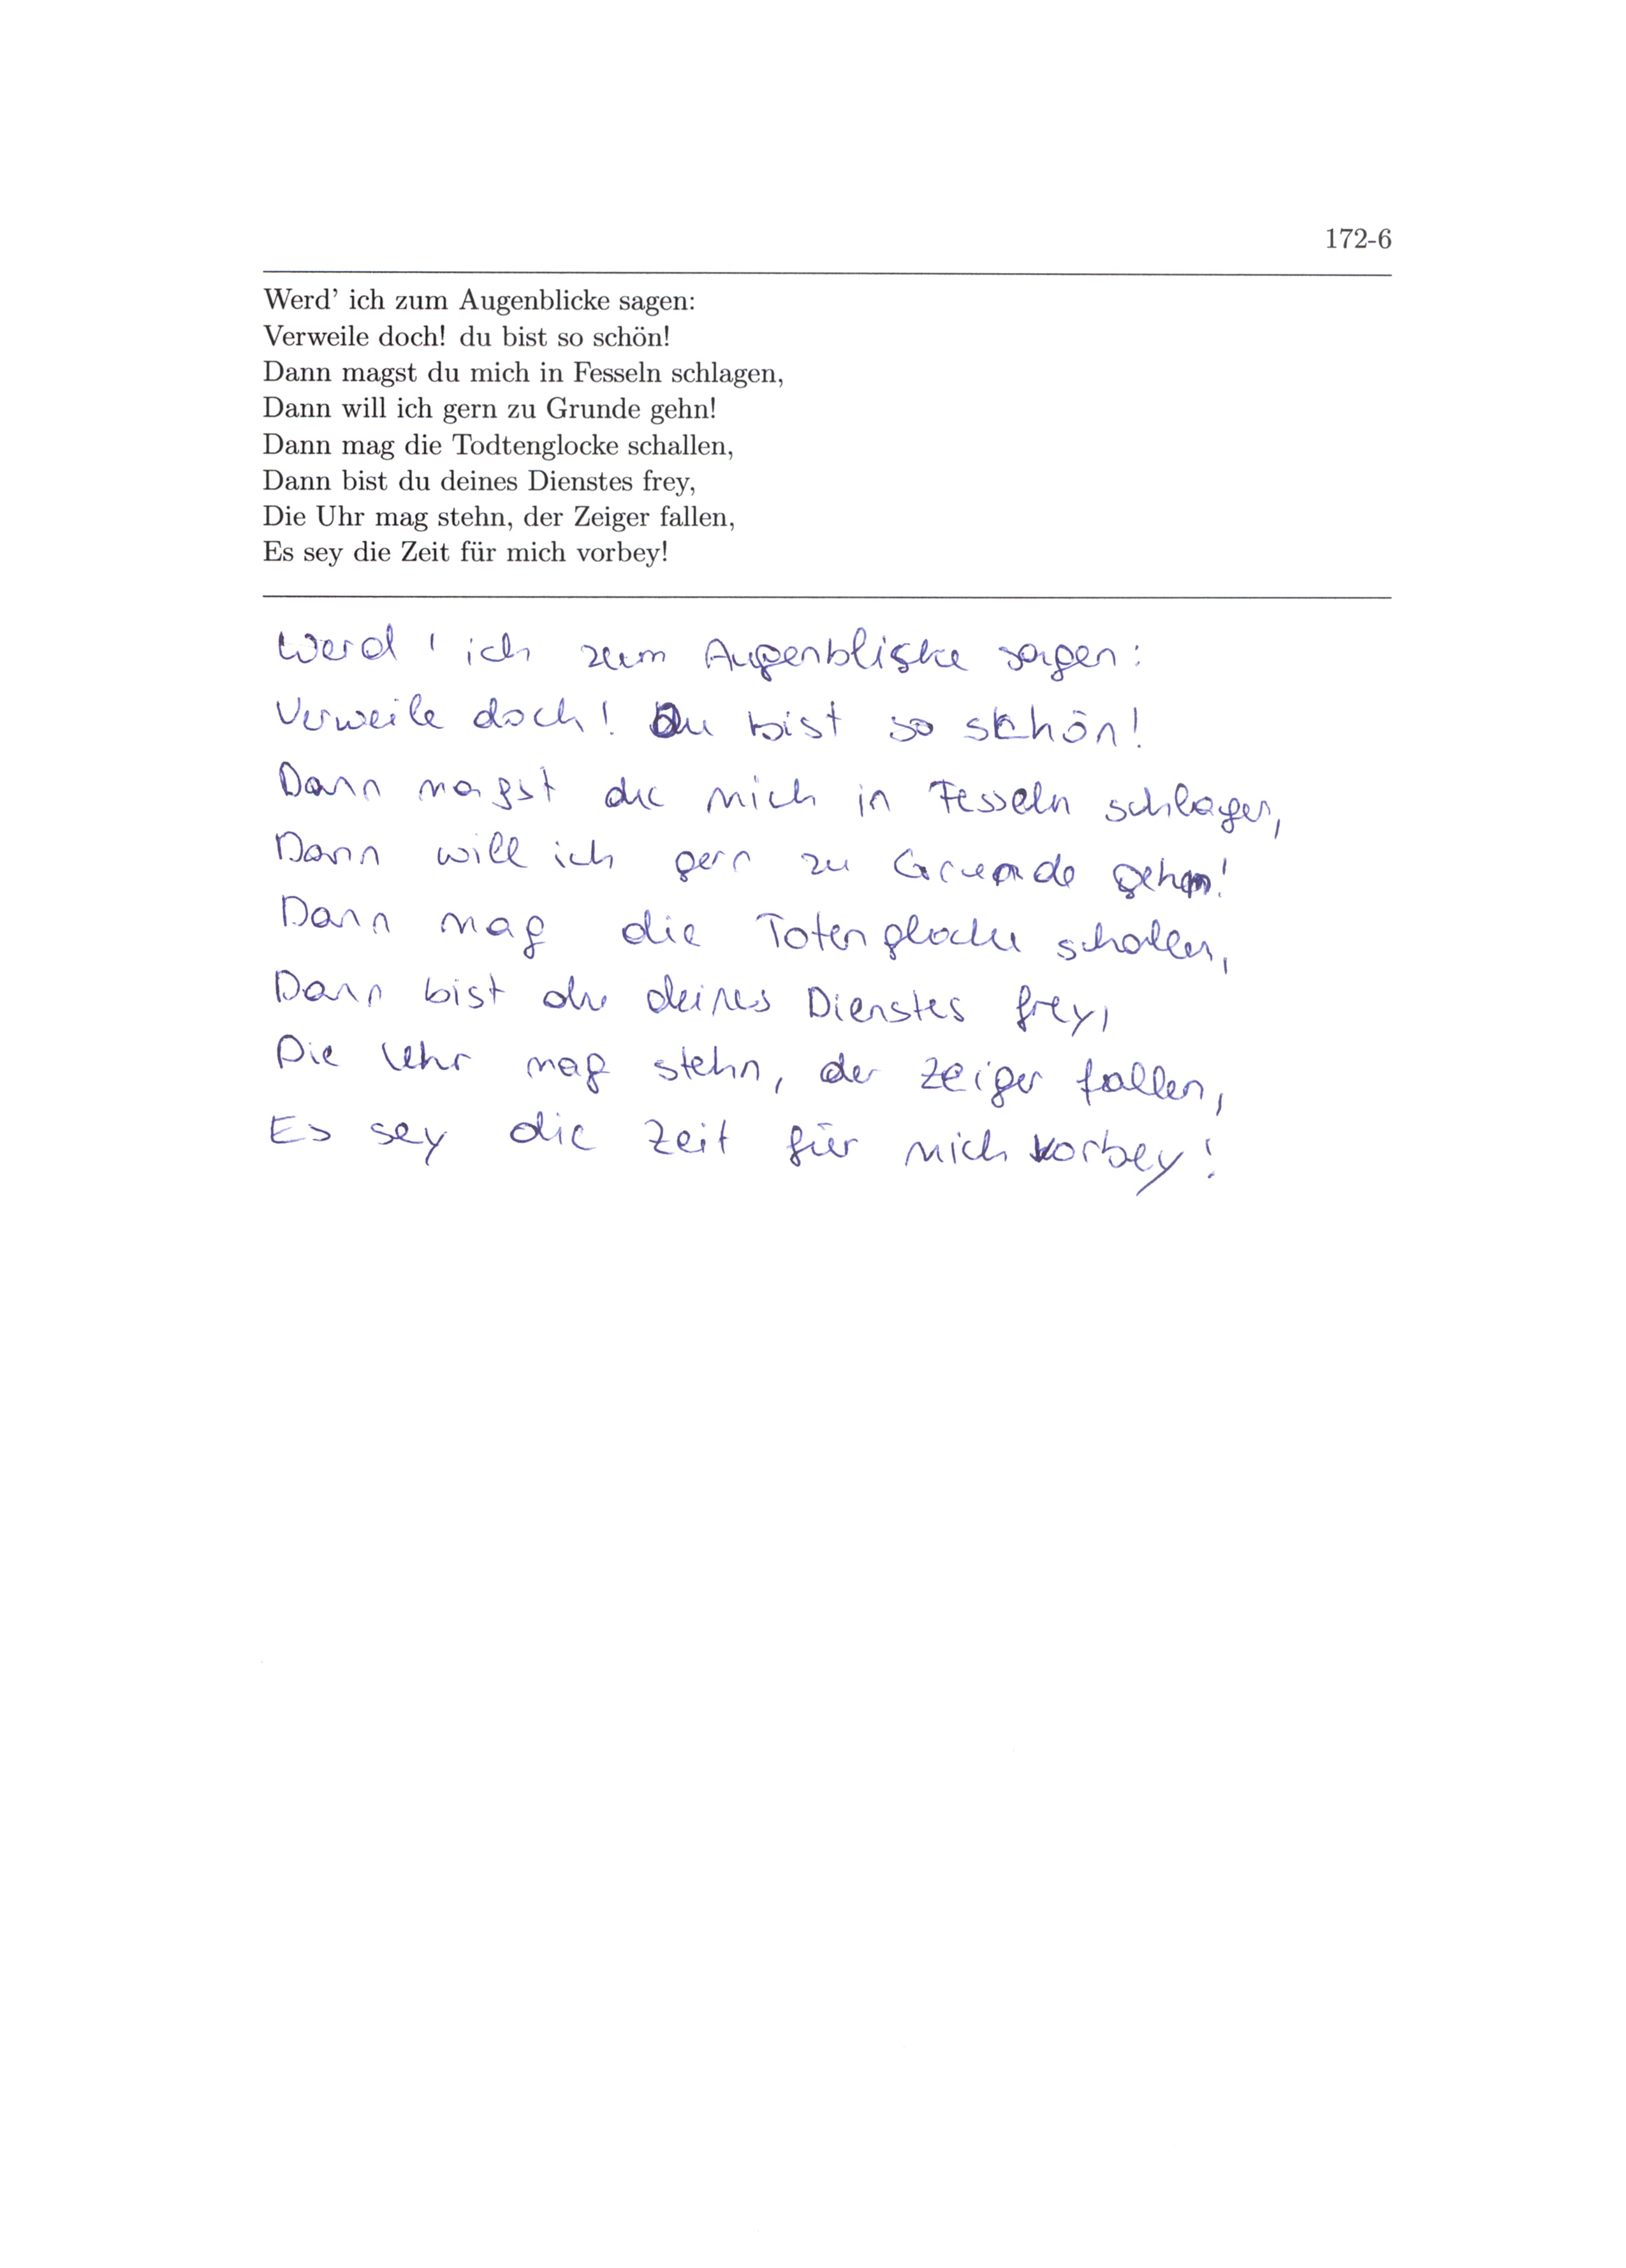 172-6
Werd' ich zum Augenblicke sagen:
Verweile doch! du bist so schön!
Dann magst du mich in Fesseln schlagen,
Dann will ich gern zu Grunde gehn!
Dann mag die Todtenglocke schallen,
Dann bist du deines Dienstes frey,
Die Uhr mag stehn, der Zeiger fallen,
Es sey die Zeit für mich vorbey!
Werd' ich zum Augenblicke sagen:
Verweile doch! Du bist so schön!
Dann magst du mich in Fesseln schlagen,
Dann will ich gern zu Grunde gehn!
Dann mag die Totenglocke schallen,
Dann bist du deines Dienstes frey,
Die Uhr mag stehn, der Zeiger fallen,
Es sey die Zeit für mich vorbey!